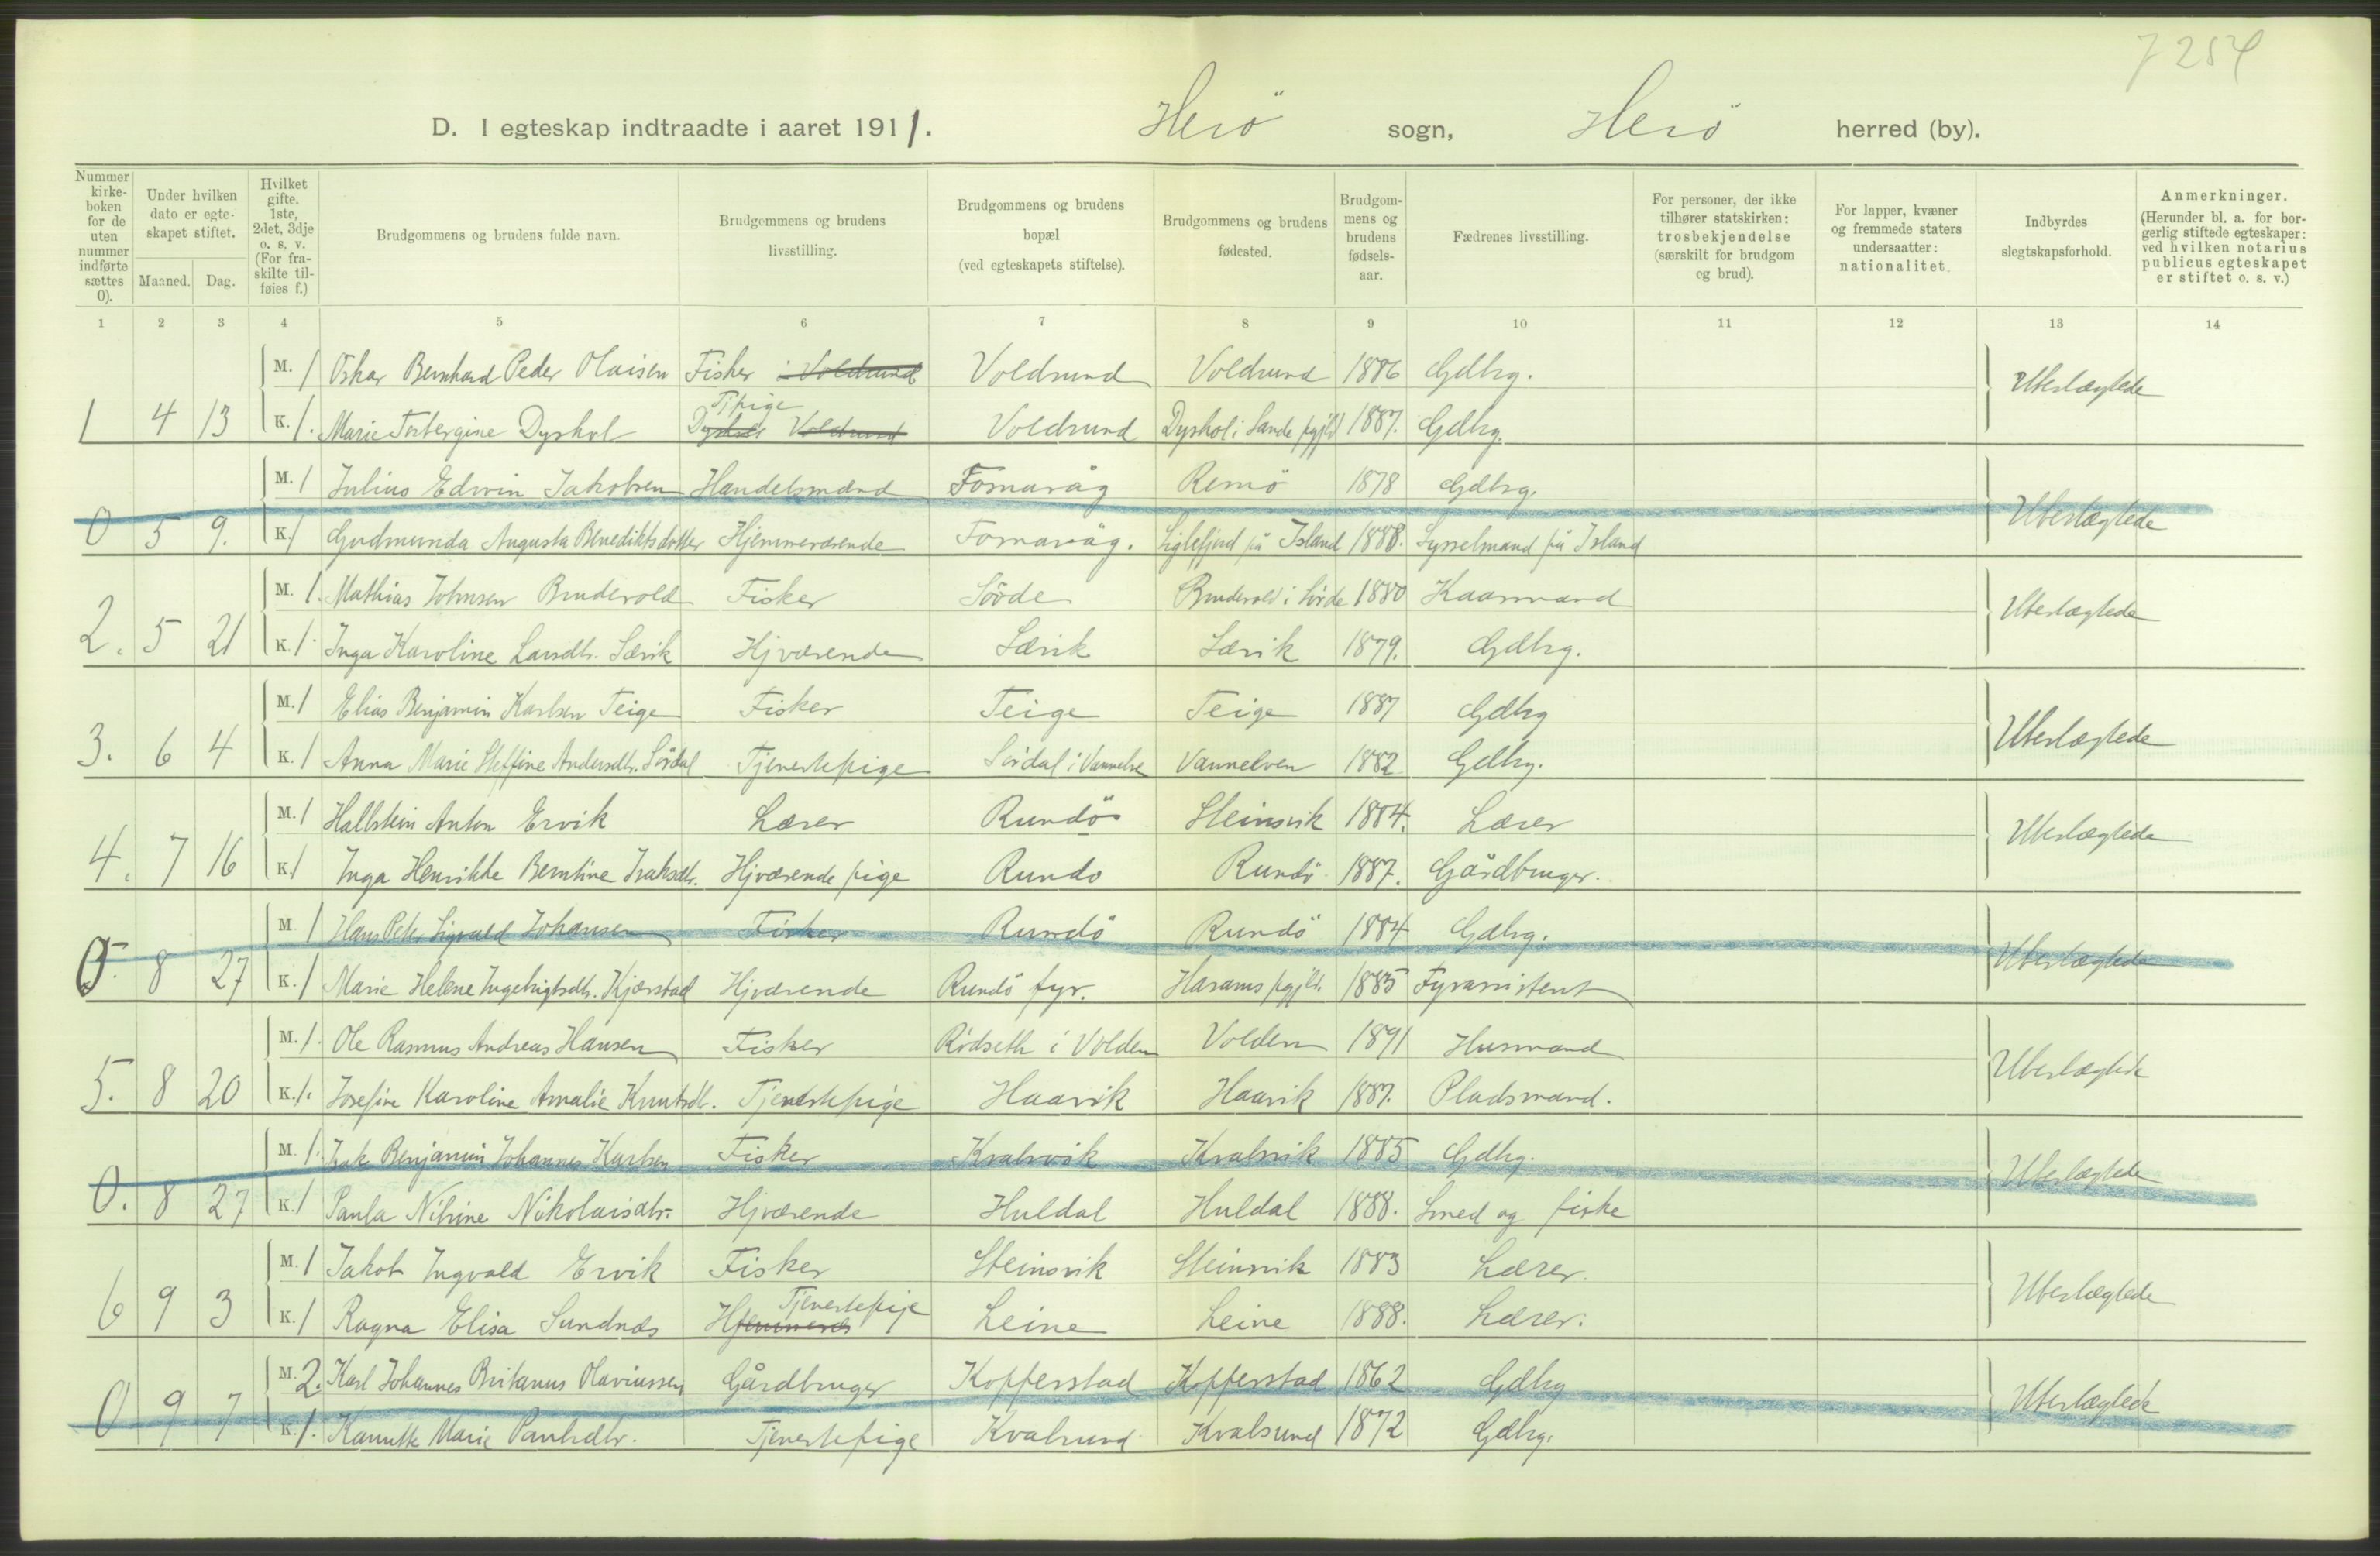 7 254
D. I egteskap indtraadte i aaret 1911. Herö sogn, Herö herred (by).
Nummer kirkeboken for de uten nummer indførte sættes 0). | Under hvilken dato er egteskapet stiftet. Maaned. Dag. | Hvilket gifte. 1ste, 2det, 3dje o. s. v. (For fraskilte tilføies f.) | Brudgommens og brudens fulde navn. | Brudgommens og brudens livsstilling. | Brudgommens og brudens bopæl (ved egteskapets stiftelse). | Brudgommens og brudens fødested. | Brudgommens og brudens fødselsaar. | Fædrenes livsstilling. | For personer, der ikke tilhører statskirken: trosbekjendelse (særskilt for brudgom og brud). | For lapper, kvæner og fremmede staters undersaatter: nationalitet. | Indbyrdes slegtskapsforhold. | Anmerkninger. (Herunder bl. a. for borgerlig stiftede egteskaper: ved hvilken notarius publicus egteskapet er stiftet o. s. v.)
1 2 3 4 5 6 7 8 9 10 11 12 13 14
M. 1 Oskar Bernhard Peder Olaisen Fisker i Voldsund Voldsund Voldsund 1886 Gdbrg. Ubeslægtede
1 4 13 K. 1. Marie Torbergine Dyrhol Tjpige Dyrhol Voldsund Voldsund Dyrhol i Sande pgjld 1887. Gdbrg.
M. 1 Julius Edvin Jakobsen Handelsmand Fosnavåg Remö 1878 Gdbrg. Ubeslægtede
0 5 9. K. 1 Gudmunda Augusta Benediktsdotter Hjemmeværende Fosnavåg. Siglefjord på Island 1888. Sysselmand på Island
M. 1. Mathias Johnsen Brudevold Fisker Sövde Brudevold i Sövde 1880 Kaarmand Ubeslægtede
2. 5 21 K. 1. Inga Karoline Larsdtr. Sævik Hjværende Sævik Sævik 1879. Gdbrg.
M. 1 Elias Benjamin Karlsen Teige Fisker Teige Teige 1887 Gdbrg Ubeslægtede
3. 6 4 K. 1 Anna Marie Steffine Andersdtr. Sördal Tjenestepige Sördal i Vannelve Vannelven 1882 Gdbrg.
M. 1 Hallstein Anton Ervik Lærer Rundö Steinsvik 1884. Lærer Ubeslægtede
4. 7 16 K. 1 Inga Henrikke Berntine Isaksdtr. Hjværende pige Rundö Rundö 1887. Gårdbruger.
M. 1 Hans Peter Sigvald Johansen Fisker Rundö Rundö 1884 Gdbrg. Ubeslægtede
0. 8 27 K. 1 Marie Helene Ingebrigtsdtr. Kjærstad Hjværende Rundö fyr. Harams pgjld. 1885 Fyrassistent
M. 1. Ole Rasmus Andreas Hansen Fisker Rödseth i Volden Volden 1891 Husmand Ubeslægtede
5. 8 20 K. 1. Josefine Karoline Amalie Knutsdtr. Tjenestepige Haavik Haavik 1887. Pladsmand.
M. 1. Isak Benjamin Johannes Karlsen Fisker Kvalsvik Kvalsvik 1885 Gdbrg. Ubeslægtede
0. 8 27 K. 1 Paula Nikoline Nikolaisdtr. Hjværende Huldal Huldal 1888. Smed og fisker
M. 1 Jakob Ingvald Ervik Fisker Steinsvik Steinsvik 1883 Lærer. Ubeslægtede
6 9 3 K. 1 Ragna Elisa Sundnæs Hjemmevær Tjenestepige Leine Leine 1888. Lærer.
M. 2. Karl Johannes Britanus Olaviussen Gårdbruger Kopperstad Kopperstad 1862 Gdbrg Ubeslægtede
0 9 7 K. 1. Kanutte Marie Paulsdtr. Tjenestepige Kvalsund Kvalsund 1872 Gdbrg.